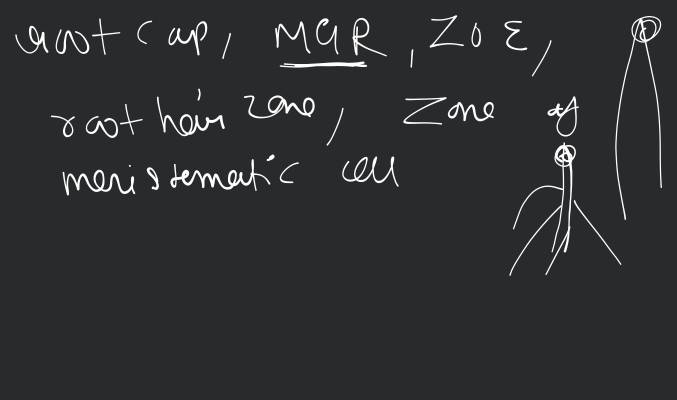 root cap, MGR, ZOE,
root hair zone, Zone of
meristematic cell